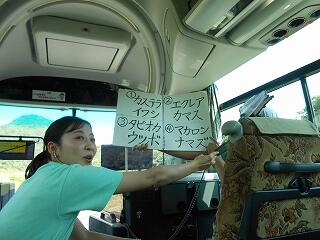 ①カステラ
イワシ
②エクレア
カマス
③タピオカ
ウツボ
④マカロン
ナマズ